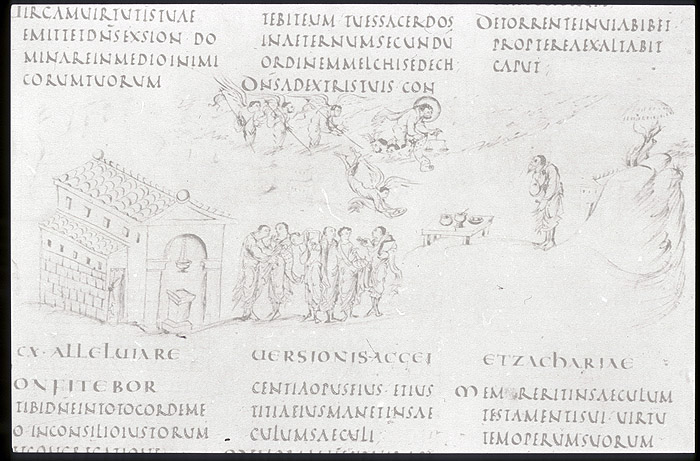 UIRGAMUIRTUTISTUAE
EMITTETDNSEXSION DO
MINAREINMEDIOINIMI
CORUMTUORUM
TEBITEUM TUESSACERDOS
INAETERNUMSECUNDU
ORDINEMMELCHISEDECH
DNSADEXTRISTUIS CON
DETORRENTEINUIABIBET
PROPTEREAEXALTABIT
CAPUT
CX·ALLELUIARE
UERSIONIS·AGGEI
ETZACHARIAE
ONFITEBOR
TIBIDNEINTOTOCORDEME
O INCONSILIOIUSTORUM
ETCONGREGATIONE
CENTIAOPUSEIUS ETIUS
TITIAEIUSMANETINSAE
CULUMSAECULI
MEMORERITINSAECULUM
TESTAMENTISUI UIRTU
TEMOPERUMSUORUM